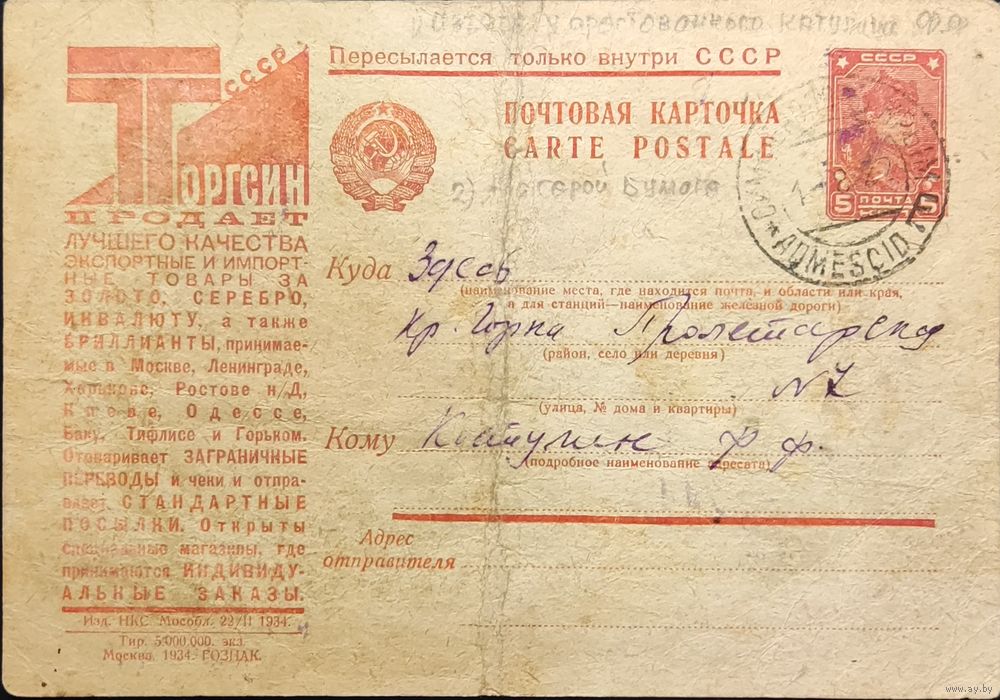 Пересылается только внутри СССР
СССР
ТОРГСИН
ПРОДАЕТ
ЛУЧШЕГО КАЧЕСТВА
ЭКСПОРТНЫЕ И ИМПОРТ-
НЫЕ ТОВАРЫ ЗА
ЗОЛОТО, СЕРЕБРО,
ИНВАЛЮТУ, а также
БРИЛЛИАНТЫ, принимае-
мые в Москве, Ленинграде,
Харькове, Ростове н/Д,
Киеве, Одессе,
Баку, Тифлисе и Горьком.
Отоваривает ЗАГРАНИЧНЫЕ
ПЕРЕВОДЫ и чеки и отпра-
вляет СТАНДАРТНЫЕ
ПОСЫЛКИ. Открыты
специальные магазины, где
принимаются ИНДИВИДУ-
АЛЬНЫЕ ЗАКАЗЫ.
Изд. НКС. Мособл. 22/II 1934.
Тир. 5.000.000. экз.
Москва. 1934. ГОЗНАК.
ПОЧТОВАЯ КАРТОЧКА
CARTE POSTALE
2) герой Бумага
СССР
5 ПОЧТА 5
ADMESCID
Куда Здесь
(наименование места, где находится почта, и области или края,
а для станций—наименование железной дороги)
Кр. Горка Пролетарская
(район, село или деревня)
№7
(улица, № дома и квартиры)
Кому Катунин Ф. Ф.
(подробное наименование адресата)
Адрес
отправителя
www.ay.by